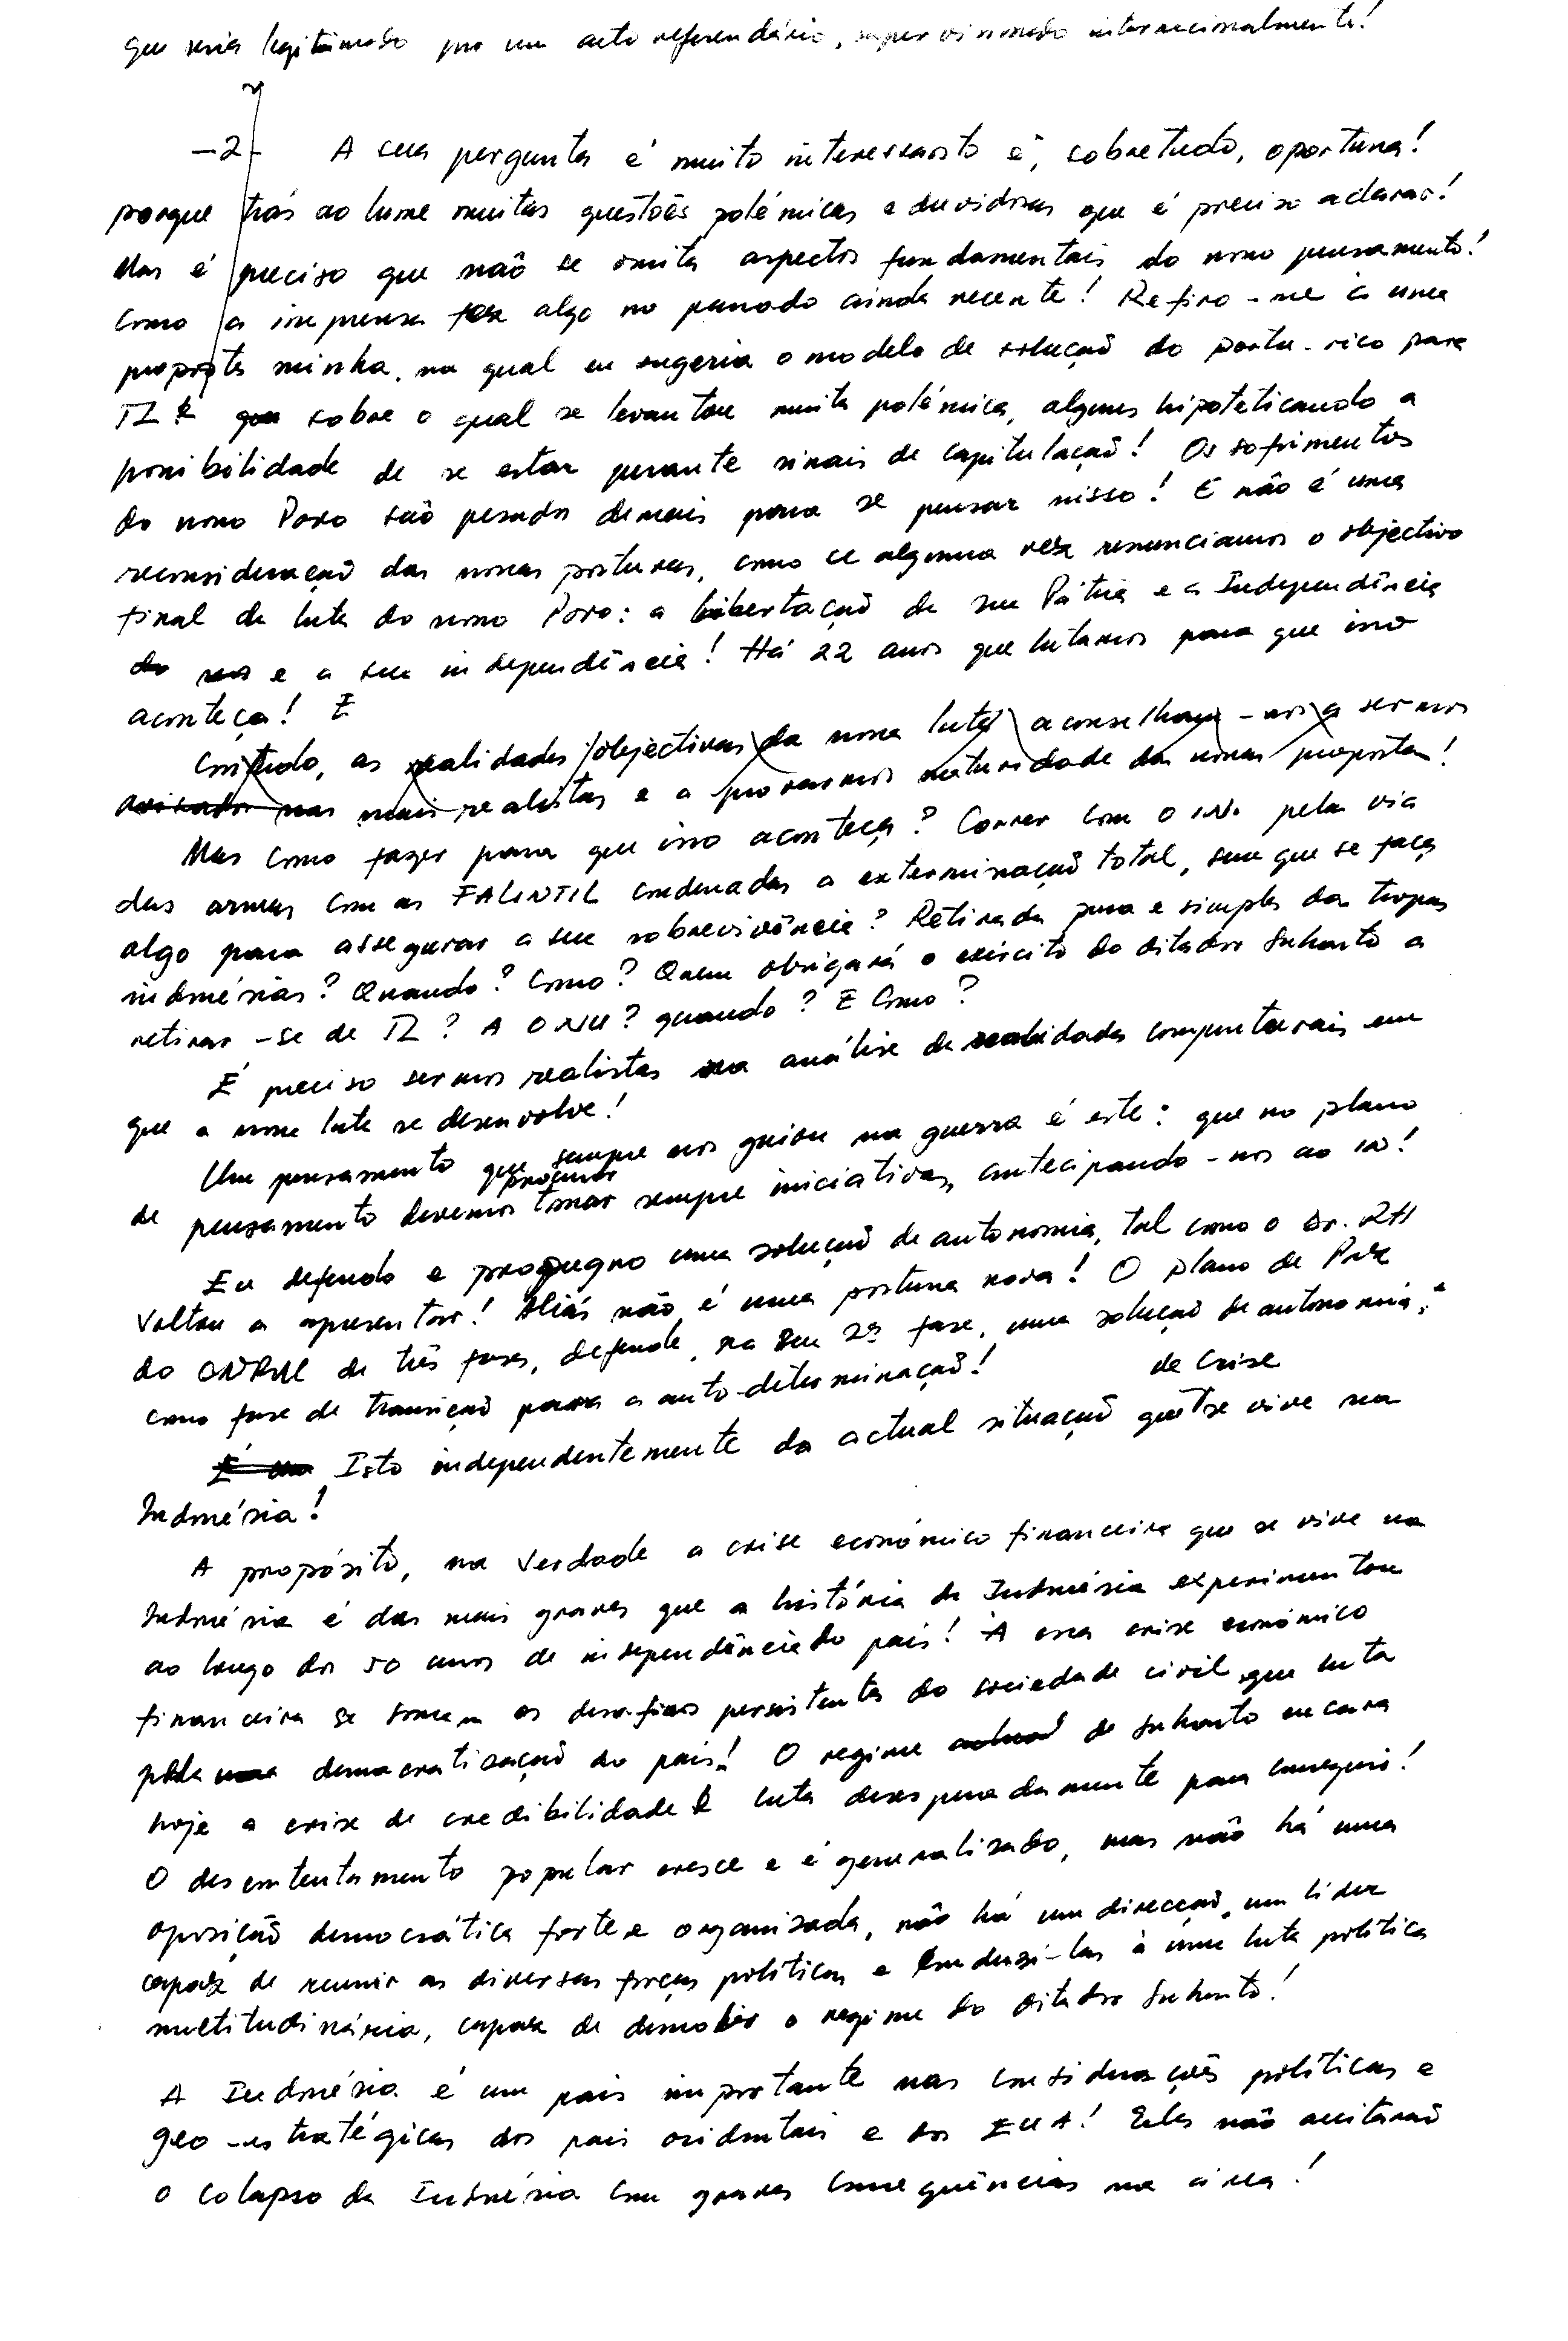 que seria legitimado por um acto referendário, supervisionado internacionalmente!
-2- A sua pergunta é muito interessante e, sobretudo, oportuna!
porque trás ao lume muitas questões polémicas e duvidosas que é preciso aclarar!
Mas é preciso que não se omita aspectos fundamentais do nosso pensamento!
Como a imprensa fez algo no passado ainda recente! Refiro-me à uma
proposta minha, na qual eu sugeria o modelo de solução do portu-rico para
TL e que sobre o qual se levantou muita polémica, alguns hipoteticando a
possibilidade de se estar perante sinais de capitulação! Os sofrimentos
do nosso Povo são pesados demais para se pensar nisso! E não é uma
reconsideração das nossas posturas, como se alguma vez renunciamos o objectivo
final da luta do nosso Povo: a libertação de sua Pátria e a Independência
do seu e a sua independência! Há 22 anos que lutamos para que isso
aconteça! E
Contudo, as realidades objectivas da nossa luta aconselham-nos a sermos
avisados nas mais realistas e a provarmos maturidade das nossas propostas!
Mas como fazer para que isso aconteça? Correr com o IN. pela via
das armas com as FALINTIL condenadas a exterminação total, sem que se faça
algo para assegurar a sua sobrevivência? Retirada pura e simples das tropas
indonésias? Quando? Como? Quem obrigará o exército do ditador Suharto a
retirar-se de TL? A ONU? quando? E Como?
É preciso sermos realistas na análise de realidades conjunturais em
que a nossa luta se desenvolve!
Um pensamento que sempre nos guiou na guerra é este: que no plano
de pensamento devemos procurar tomar sempre iniciativas, antecipando-nos ao IN!
Eu defendo e propugno uma solução de autonomia, tal como o Dr. RH
voltou a apresentar! Aliás não é uma postura nova! O plano de Paz
do CNRM de três fases, defende, na sua 2ª fase, uma solução de autonomia,
como fase de transição para a auto-determinação!
É uma Isto independentemente da actual situação de crise que se vive na
Indonésia!
A propósito, na verdade a crise económico financeira que se vive na
Indonésia é das mais graves que a história da Indonésia experimentou
ao longo dos 50 anos de independência do país! A essa crise económico
financeira se somam os desafios persistentes da sociedade civil que luta
pela uma democratização do país! O regime actual de Suharto encara
hoje a crise de credibilidade e luta desesperadamente para conseguir!
O descontentamento popular cresce e é generalizado, mas não há uma
oposição democrática forte e organizada, não há um direcção, um líder
capaz de reunir as diversas forças políticas e conduzi-las à uma luta política
multitudinária, capaz de demolir o regime do ditador Suharto!
A Indonésia é um país importante nas considerações políticas e
geo-estratégicas dos pais ocidentais e dos EUA! Eles não aceitarão
o colapso da Indonésia com graves consequências na área!